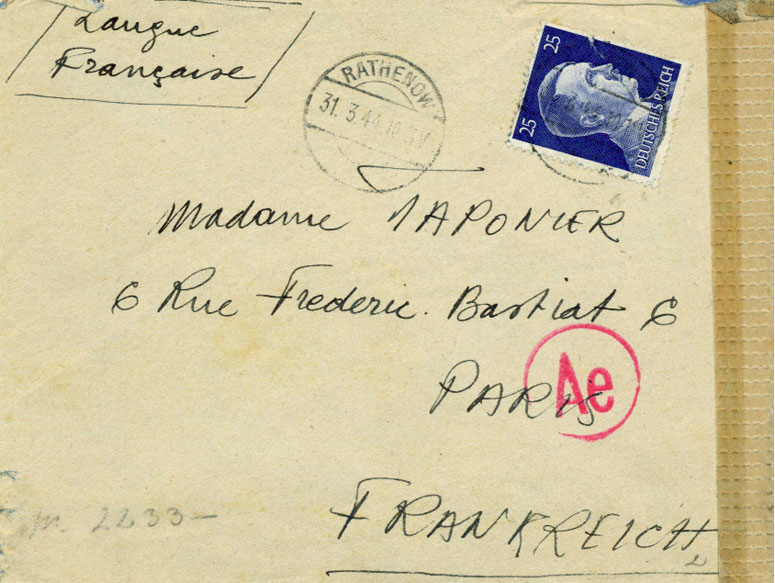 Langue
Française
RATHENOW
31. 3. 44
25
25
DEUTSCHES REICH
Madame
6 Rue Frederic. Bastiat 6
PARIS
Ae
FRANKREICH
m. 2233-